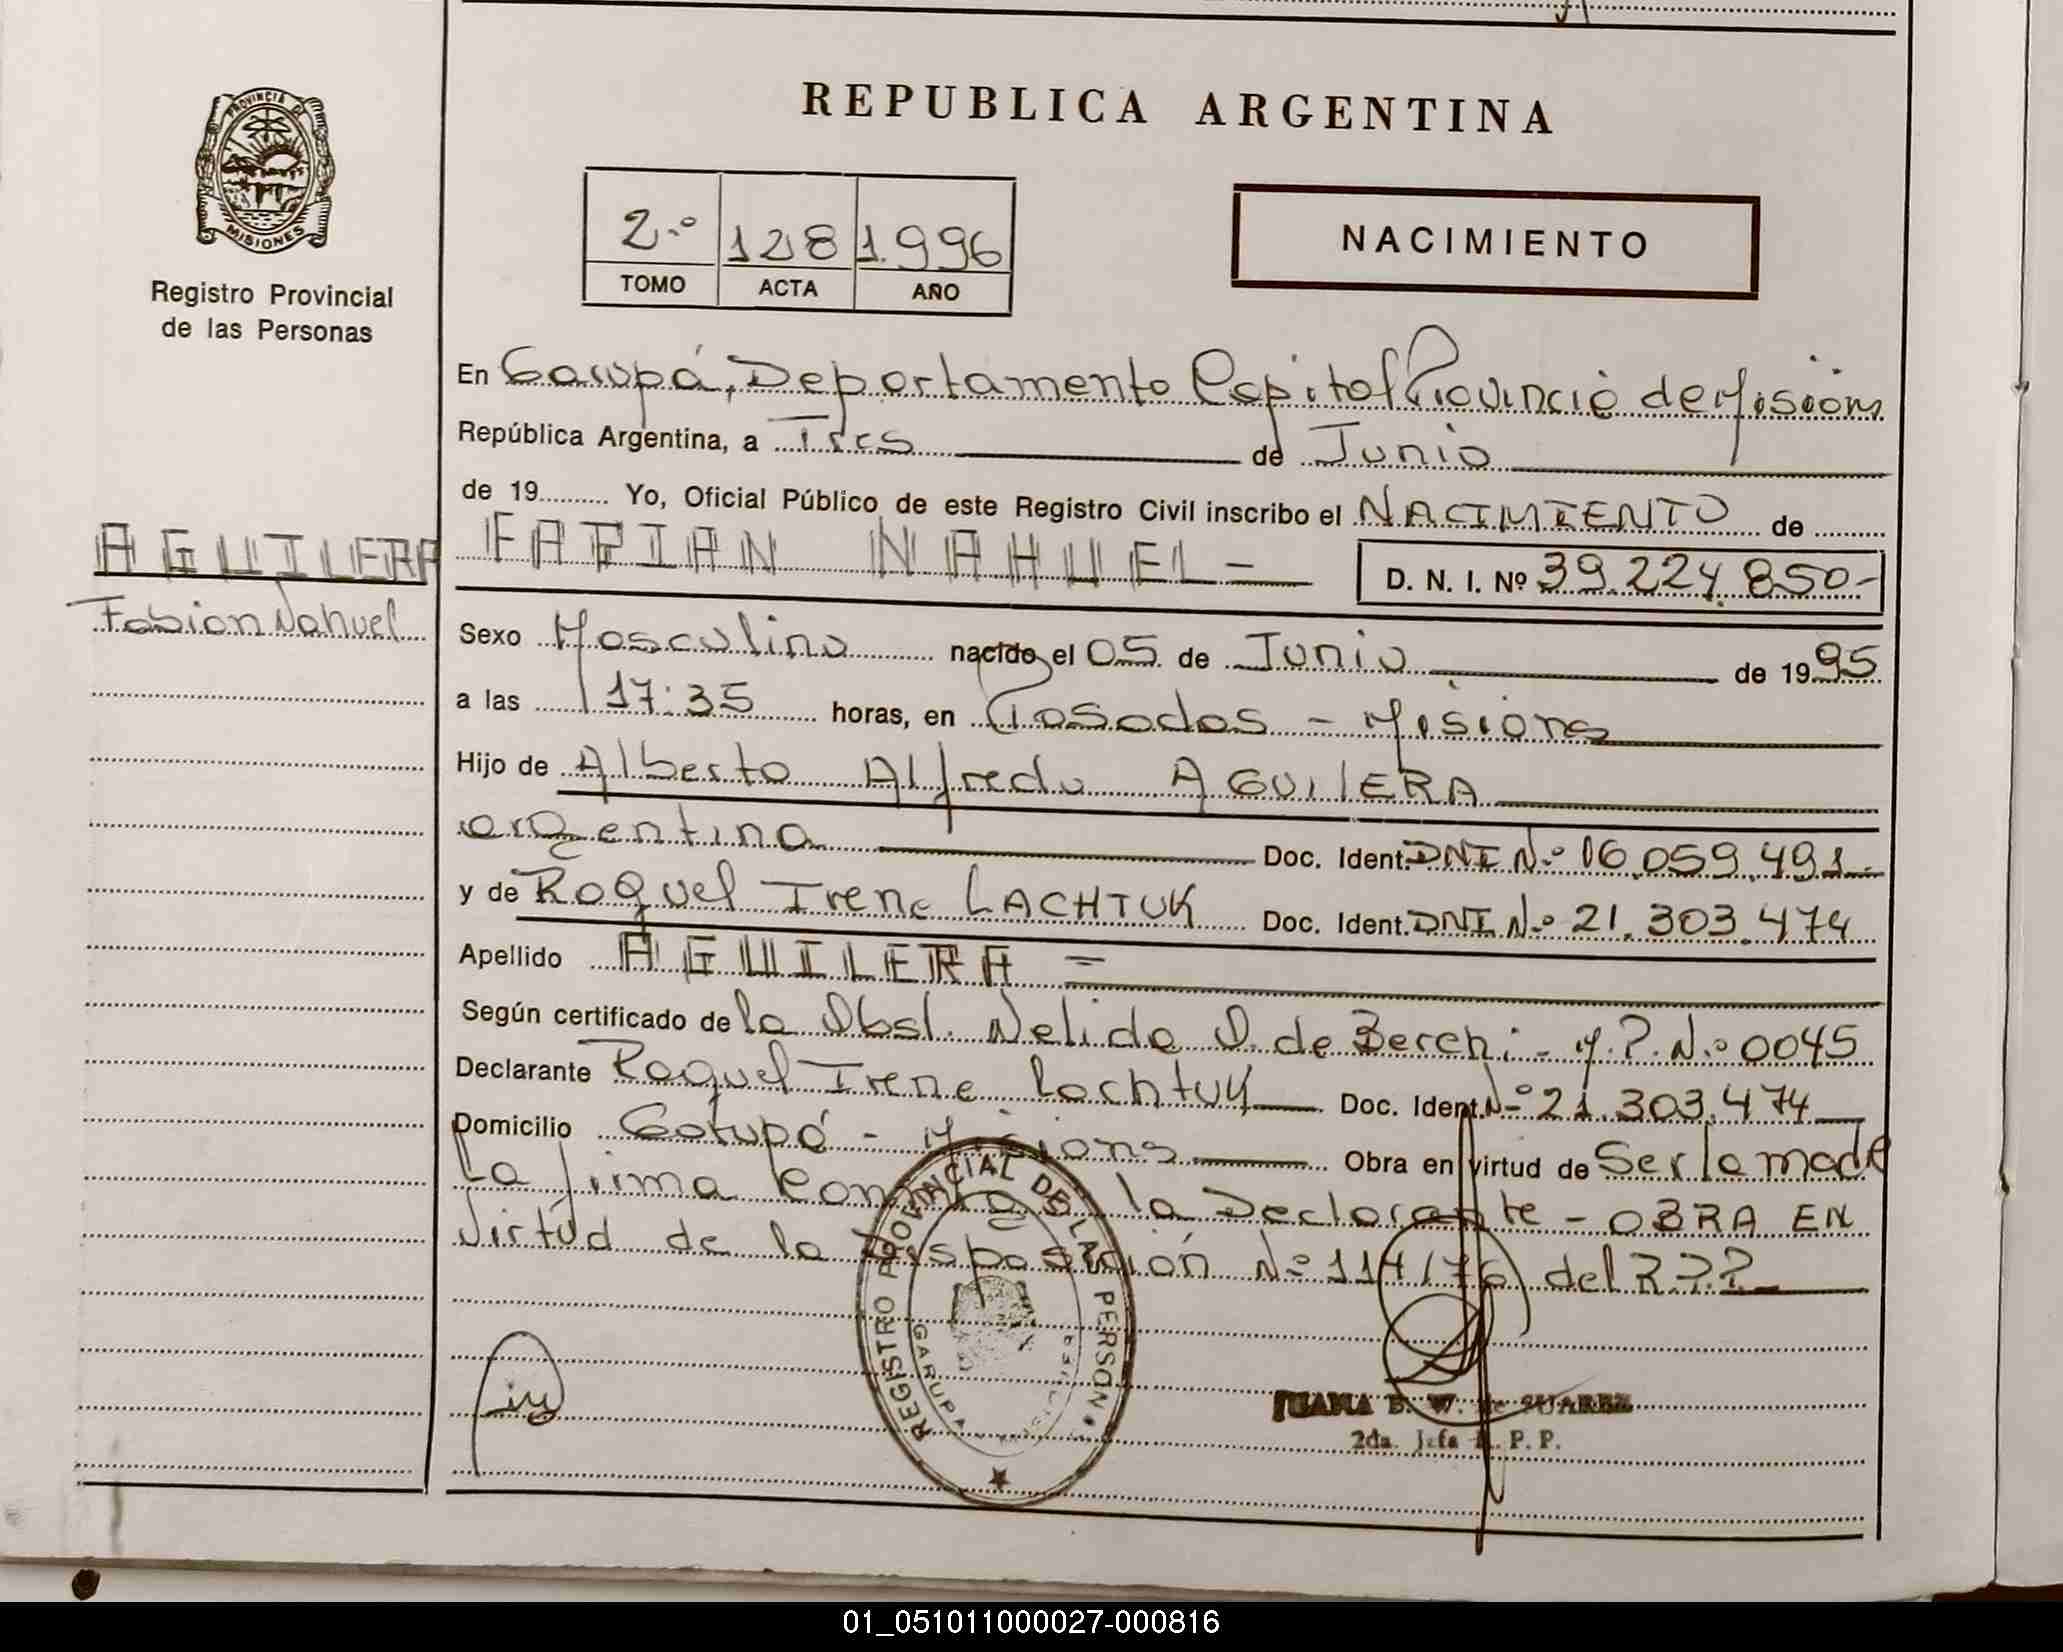 REPUBLICA ARGENTINA
PROVINCIA DE
MISIONES
Registro Provincial
de las Personas
2.º 128 1.996
TOMO ACTA AÑO
NACIMIENTO
En Garupá, Departamento Capital Provincia de Misiones
República Argentina, a Tres de Junio
de 19 Yo, Oficial Público de este Registro Civil inscribo el NACIMIENTO de
AGUILERA
Fabian Nahuel
FABIAN NAHUEL - D. N. I. Nº 39.224.850-
Sexo Masculino nacido el 05 de Junio de 1995
a las 17:35 horas, en Posadas - Misiones
Hijo de Alberto Alfredo AGUILERA
argentina Doc. Ident. DNI N.º 16.059.491-
y de Raquel Irene LACHTUK Doc. Ident. DNI N.º 21.303.474
Apellido AGUILERA =
Según certificado de la Obst. Nelida O. de Berchi - M.P. N.º 0045
Declarante Raquel Irene Lachtuk Doc. Ident. Nº 21.303.474
Domicilio Garupá - Misiones Obra en virtud de Ser la madre
La firma Conmigo la Declarante - OBRA EN
Virtud de la Disposición N.º 114/76 del R.P.P.
REGISTRO PROVINCIAL DE LAS PERSONAS
GARUPA
JUANA E. W. de SUAREZ
2da. Jefa R. P. P.
01_051011000027-000816